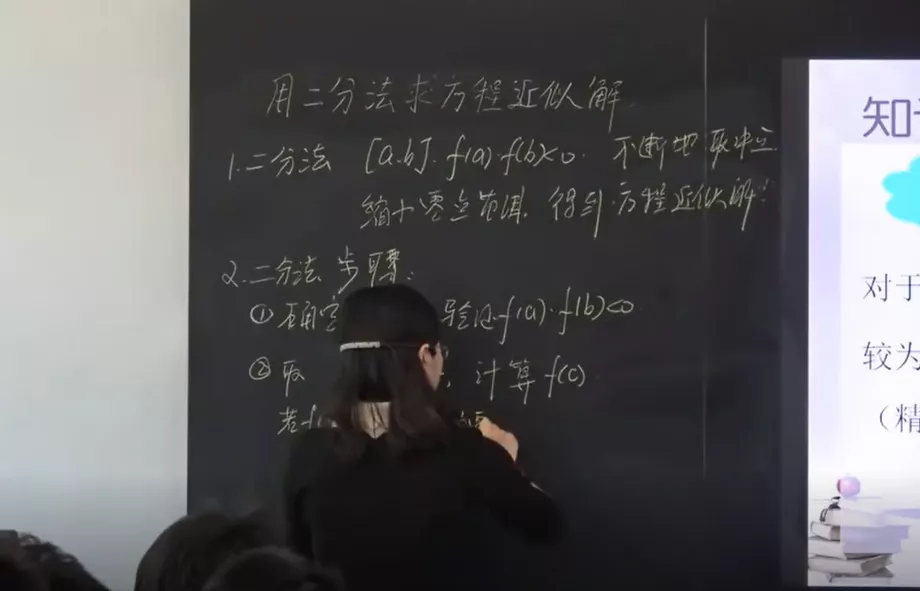 用二分法求方程近似解
1.二分法 [a.b]. f(a)·f(b)<0. 不断地取中点
缩小零点范围, 得到方程近似解.
2.二分法步骤:
①确定 验证f(a)·f(b)<0
②取 , 计算f(c)
若f(
知
对于
较为
（精